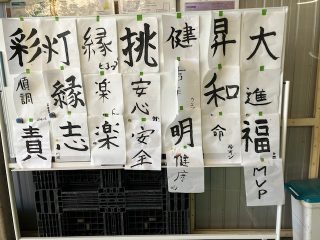 彩灯
縁
挑
健
昇
大
順調
縁
楽
安心
和
進
責
志
楽
安全
明
命
福
健康
MVP